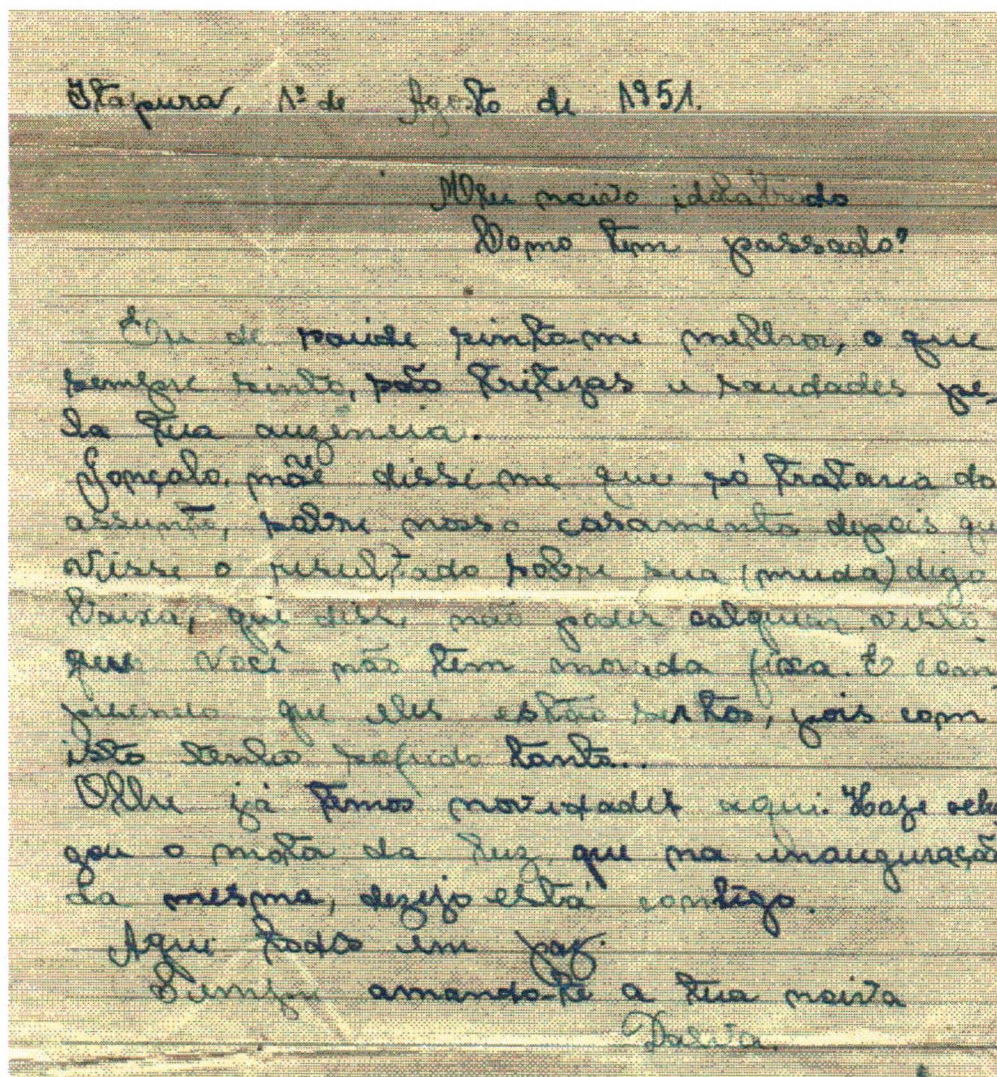 Itapura, 1º de Agosto de 1951.
Meu noivo idolatrado
Como tem passado?
Eu de saúde sinto-me melhor, o que
sempre sinto, são tritezas e saudades pe-
la tua auzência.
Gonçalo, mãe disse me que só trataria do
assunto, sobre nosso casamento depois que
visse o resultado sobre sua (muda) digo
baixa, que disse não poder calquear visto
que você não tem morada fixa. E com
preendo que eles estão sertos, pois com
isto tenho sofrido tanto...
Olhe já temos novidades aqui. Hoje xeh
gou o mota da luz, que na inauguração
da mesma, dezejo está contigo.
Aqui todos em paz.
Sempre amando-te a tua noiva